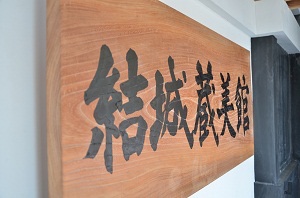 結城蔵美館